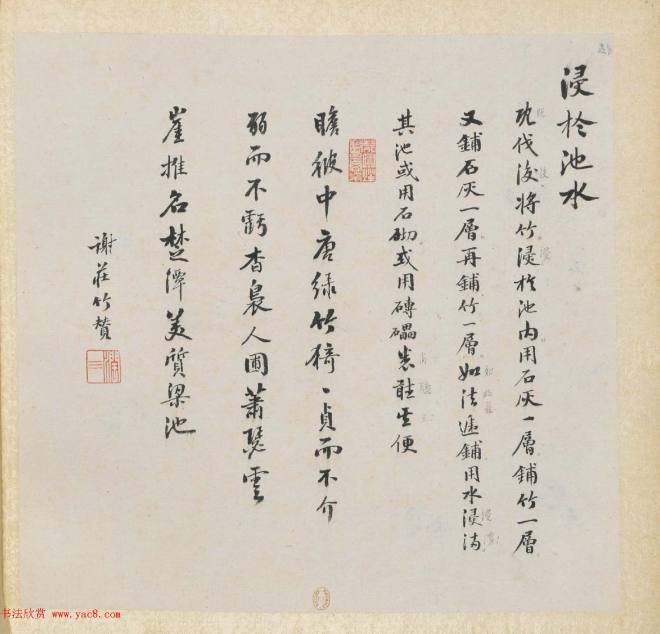 浸於池水
既伐後将竹浸於池内用石灰一層鋪竹一層
又鋪石灰一層再鋪竹一層如法递鋪用水浸满
其池或用石砌或用磚礧悉聴其便
瞻彼中唐緑竹猗〻貞而不介
弱而不虧杳裊人圃蕭瑟雲
崖推名楚潭美質梁池
謝莊竹贊
书法欣赏 www.yac8.com